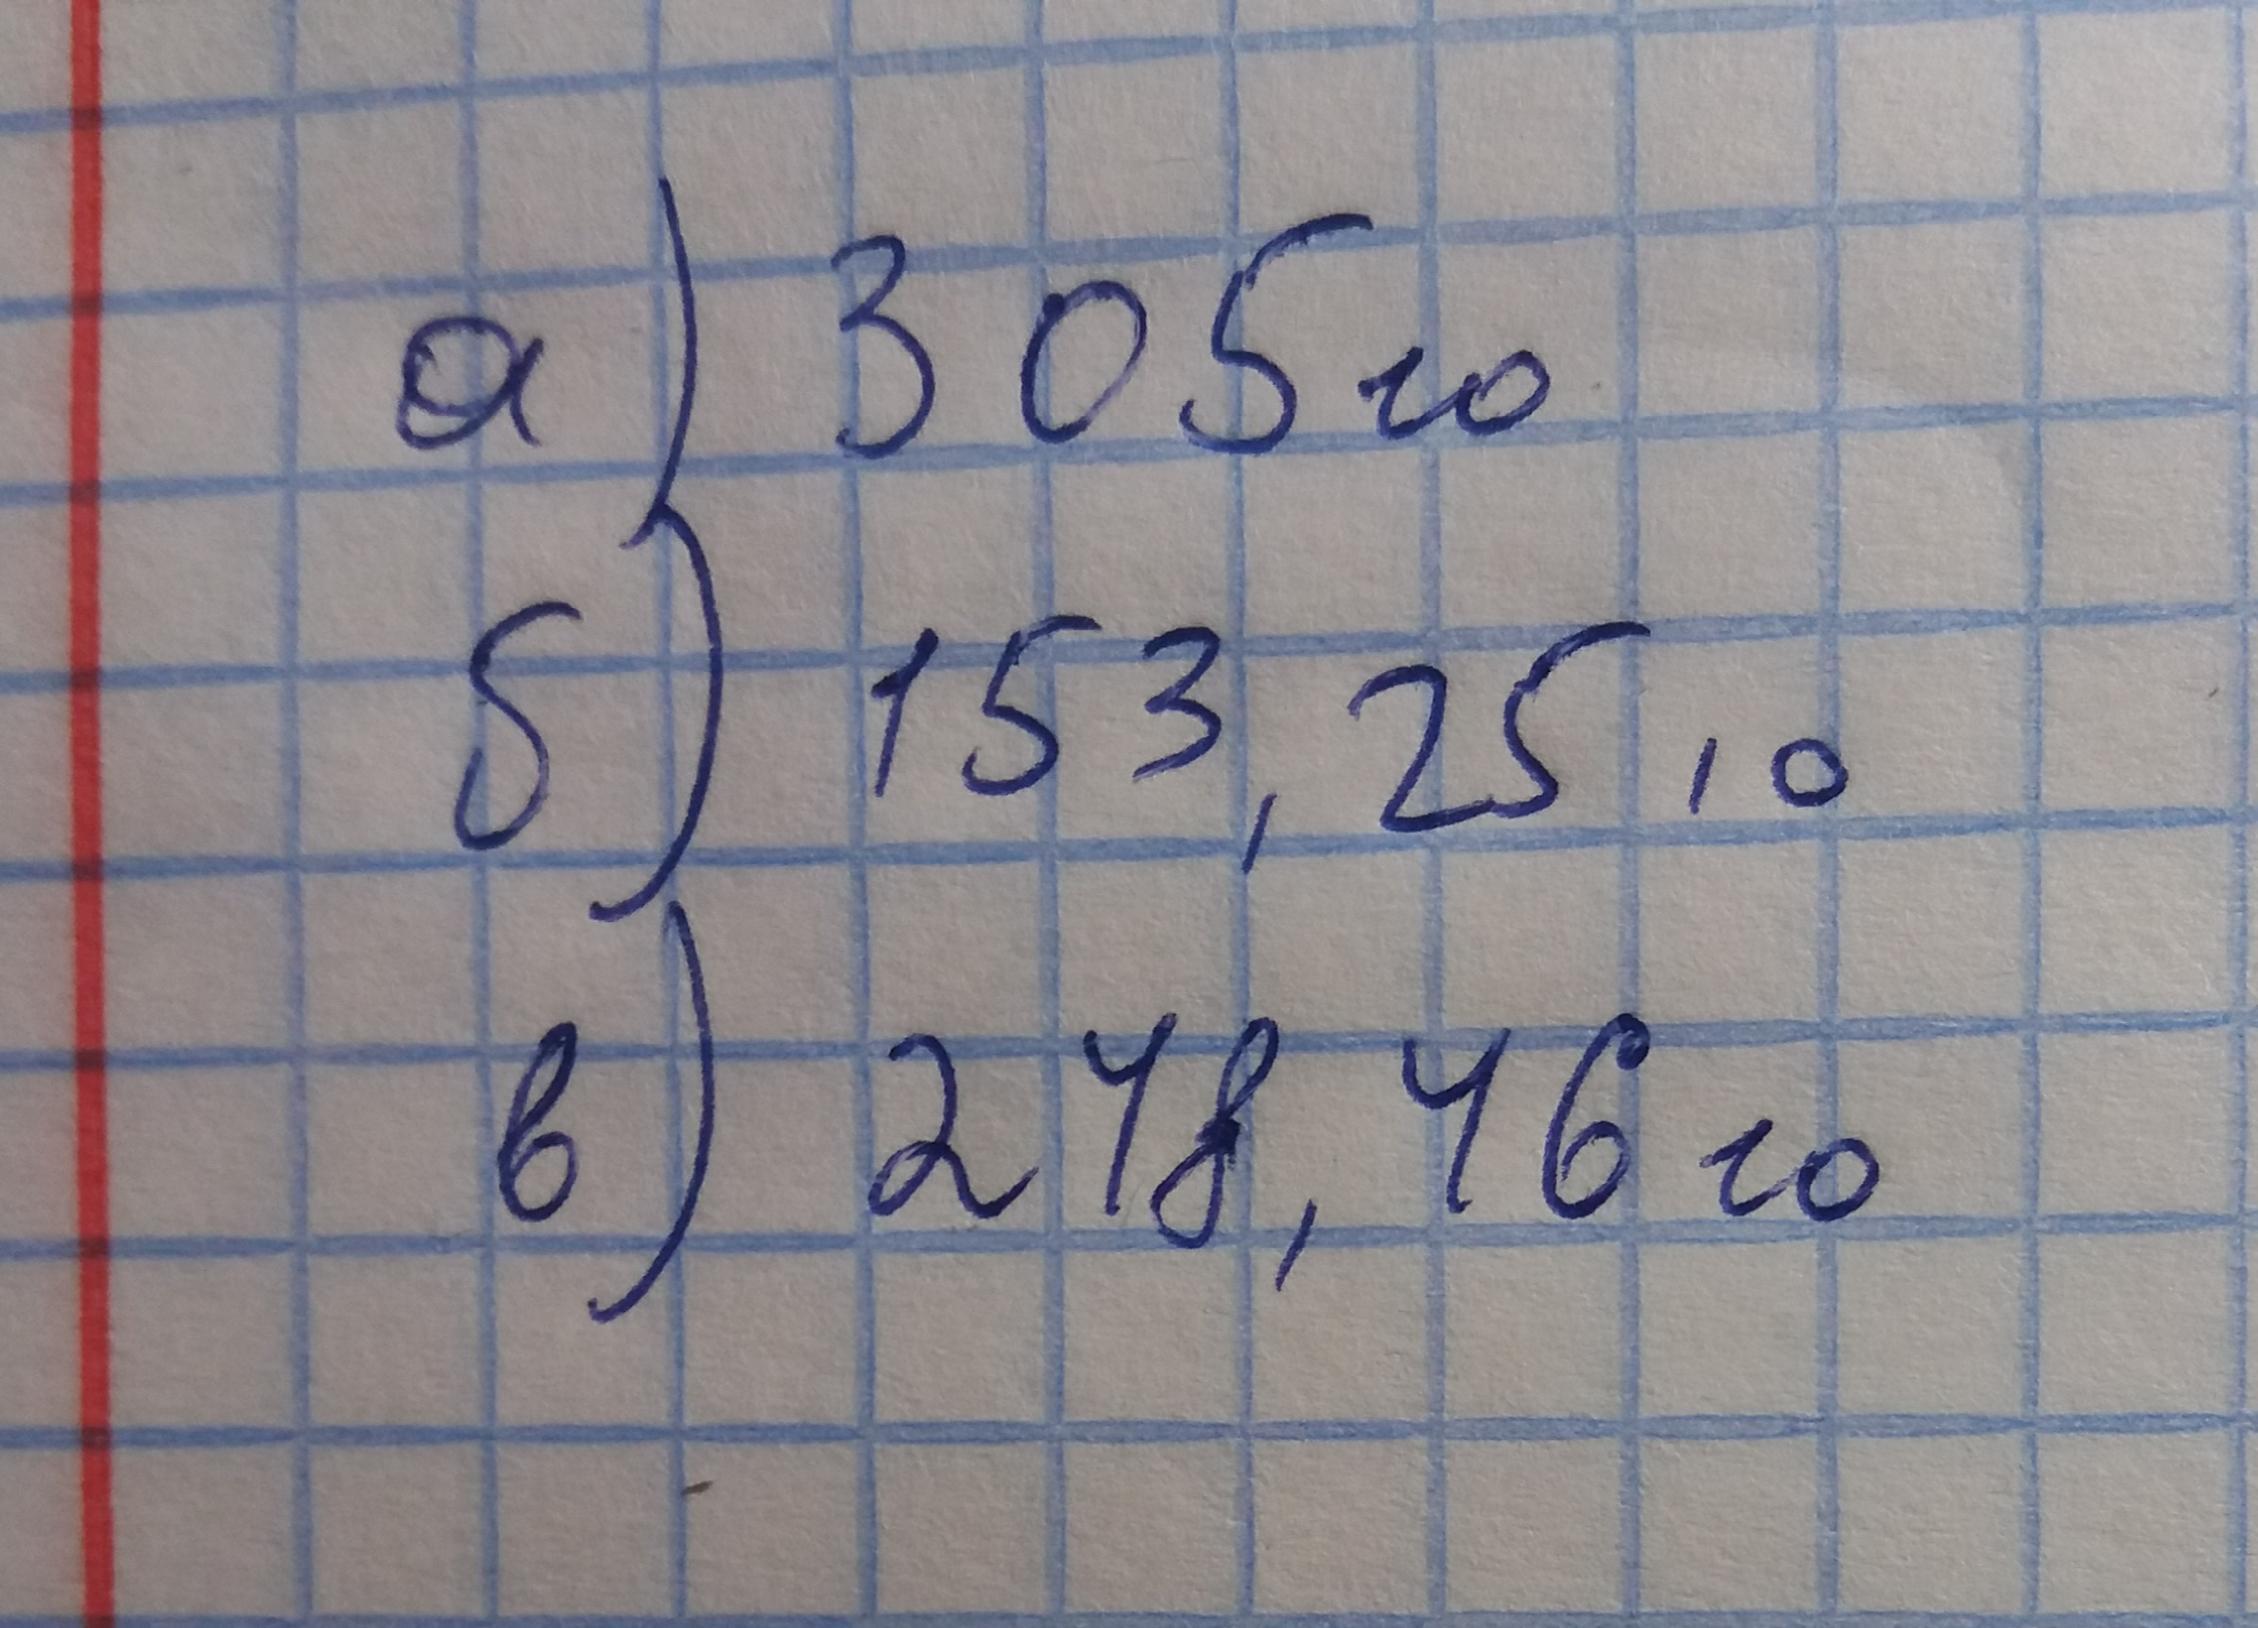 а) 305₁₀
б) 153,25₁₀
в) 248,46₁₀